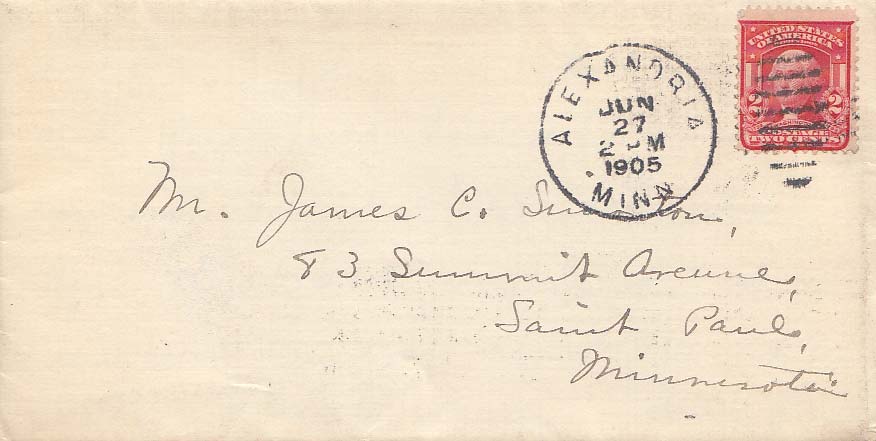 ALEXANDRIA
JUN
27
2 PM
1905
MINN
UNITED STATES
OF AMERICA
2 2
POSTAGE
TWO CENTS
Mr. James C.
83 Summit Avenue,
Saint Paul,
Minnesota